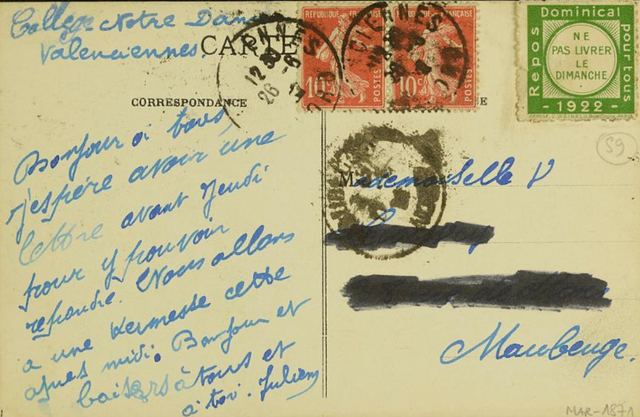 Collège Notre Dame
Valenciennes.
CARTE
CORRESPONDANCE
Bonjour à tous,
j'espère avoir une
lettre avant Jeudi
pour y pouvoir
répondre. Nous allons
a une Kermesse cette
après midi. Bonjour et
baisers à tous et
à toi. Julien
REPUBLIQUE FRANÇAISE
10c
POSTES
10c
POSTES
Repos Dominical pour tous
NE
PAS LIVRER
LE
DIMANCHE
1922
59
Mademoiselle
Maubeuge.
MAR-1871